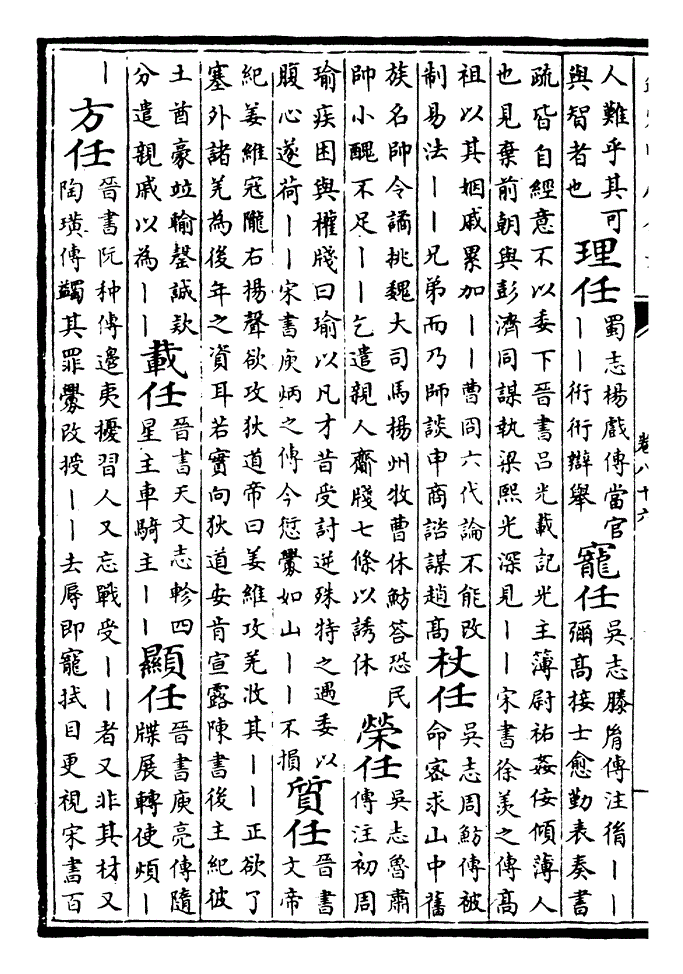 人難乎其可
與智者也
理任
蜀志楊戲傳當官
——衎衎辯舉
寵任
吳志滕胤傳注胤——
彌高接士愈勤表奏書
疏皆自經意不以委下晉書呂光載記光主簿尉祐姦佞傾薄人
也見棄前朝與彭濟同謀執梁熙光深見——宋書徐羨之傳高
祖以其姻戚累加——曹冏六代論不能改
制易法——兄弟而乃師談申商諮謀趙高
杖任
吳志周魴傳被
命密求山中舊
族名帥令譎挑魏大司馬揚州牧曹休魴答恐民
帥小醜不足——乞遣親人齎牋七條以誘休
榮任
吳志魯肅
傳注初周
瑜疾困與權牋曰瑜以凡才昔受討逆殊特之遇委以
腹心遂荷——宋書庾炳之傳今愆釁如山——不損
質任
晉書
文帝
紀姜維寇隴右揚聲欲攻狄道帝曰姜維攻羌收其——正欲了
塞外諸羌為後年之資耳若實向狄道安肯宣露陳書後主紀彼
土酋豪竝輸罄誠款
分遣親戚以為——
載任
晉書天文志軫四
星主車騎主——
顯任
晉書庾亮傳隨
牒展轉使煩—
—
方任
晉書阮种傳邊夷擾習人又忘戰受——者又非其材又
陶璜傳蠲其罪釁改授——去辱即寵拭目更視宋書百
卷八十六